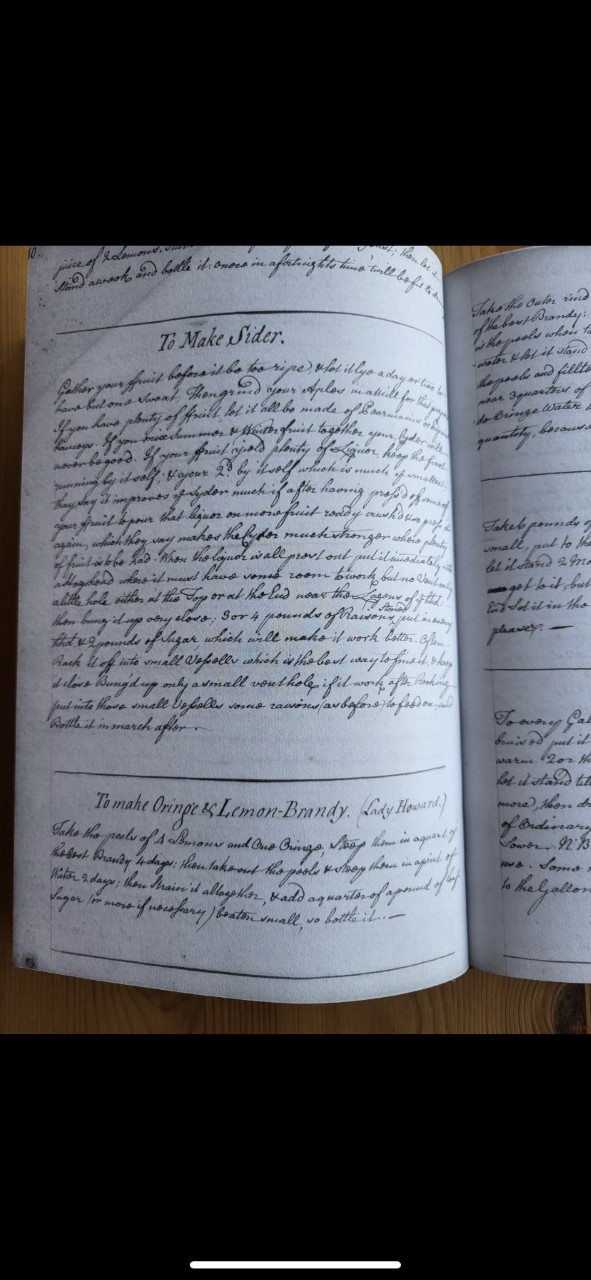 10.
juice of 2 Lemons,
Stand a week, and bottle it. once in a fortnights time will be fit to
To Make Sider.
Gather your ffruit before it be too ripe, & let it lye a day or two to
have but one Sweat; Then grind your Aples in a Mill for that
If you have plenty of ffruit let it all be made of Pearmains or
If you mix Summer & Winter fruit together your Cyder will
never be good. If your ffruit yield plenty of Liquor, keep the first
running by itself; & your 2d. by itself which is much ye smaller
they say it improves ye Syder much if after having press'd of some of
your fruit to pour that liquor on more fruit ready crush'd & so press it
again, which they say makes the Cyder much stronger where plenty
of fruit is to be had. When the liquor is all prest out put it imediately into
a Hogshead where it must have some room to work but no Vent only
a little hole either at the Top or at the End near the
then bung'd up very close; 3 or 4 pounds of Raisons, put in every
Hhd & 2 pounds of Sugar which will make it work better. Often
Rack it off into small Vessells which is the best way to fine it, & keep
it close Bung'd up only a small vent hole, if it work after Racking
put into those small Vessells some raisons (as before) to feed on, and
Bottle it in march after
To make Oringe & Lemon-Brandy. (Lady Howard.)
Take the peels of 4 Limons and One Oringe, Steep them in a quart of
the best Brandy 4 days; then take out the peels & steep them in a pint of
Water 2 days; then Strain it altogether, & add a quarter of a pound of loaf
Sugar (or more if necessary) beaten small, so bottle it. —
Take the Outer rind
of the best Brandy;
as the peels when
water & let it stand
the peels and fillte
near 3 quarters of
do Oringe Water
quantity, because
Take 6 pounds of
small, put to the
let it stand 2 Mo
get to it, but
End let it in the
please. —
To every Gal
bruised put it
warm 2 or th
let it stand till
more, then dr
of Ordinary
Sower. N:B
use. Some
to the Gallon